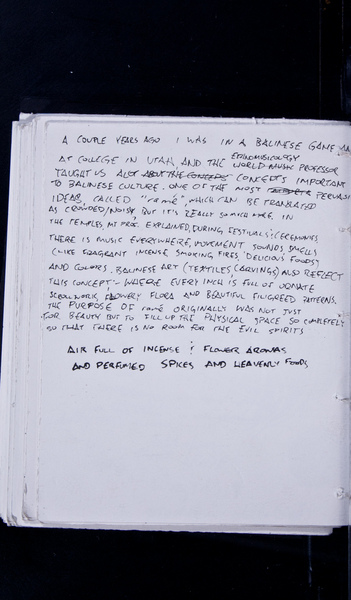 A COUPLE YEARS AGO I WAS IN A BALINESE GAMELAN
AT COLLEGE IN UTAH, AND THE ETHNOMUSICOLOGY
WORLD MUSIC PROFESSOR
TAUGHT US A LOT ABOUT THE CONCEPTS CONCEPTS IMPORTANT
TO BALINESE CULTURE. ONE OF THE MOST PERVASIVE
IDEAS, CALLED "ramé", WHICH CAN BE TRANSLATED
AS CROWDED/NOISY BUT IT'S REALLY SO MUCH MORE. IN
THE TEMPLES, MY PROF. EXPLAINED, DURING FESTIVALS & CEREMONIES
THERE IS MUSIC EVERYWHERE, MOVEMENT SOUNDS, SMELLS
(LIKE FRAGRANT INCENSE, SMOKING FIRES, DELICIOUS FOODS)
AND COLORS. BALINESE ART (TEXTILES, CARVINGS) ALSO REFLECT
THIS CONCEPT - WHERE EVERY INCH IS FULL OF ORNATE
SCROLLWORK, FLOWERY FLORA AND BEAUTIFUL FILIGREED PATTERNS.
THE PURPOSE OF ramé ORIGINALLY WAS NOT JUST
FOR BEAUTY BUT TO FILL UP THE PHYSICAL SPACE SO COMPLETELY
SO THAT THERE IS NO ROOM FOR THE EVIL SPIRITS
AIR FULL OF INCENSE & FLOWER AROMAS
AND PERFUMED SPICES AND HEAVENLY FOODS